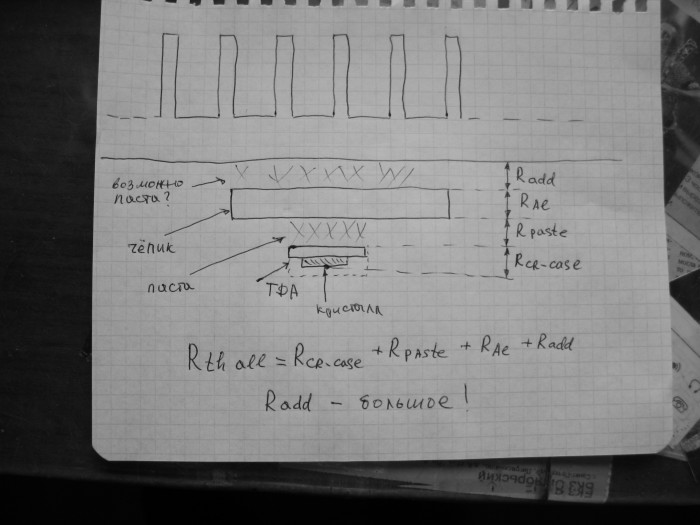 возможно
паста?
чёпик
паста
ТДА
кристалл
Radd
RAl
Rpaste
RCR-case
Rth all = RCR-case + RPAste + RAl + Radd
Radd - большое!